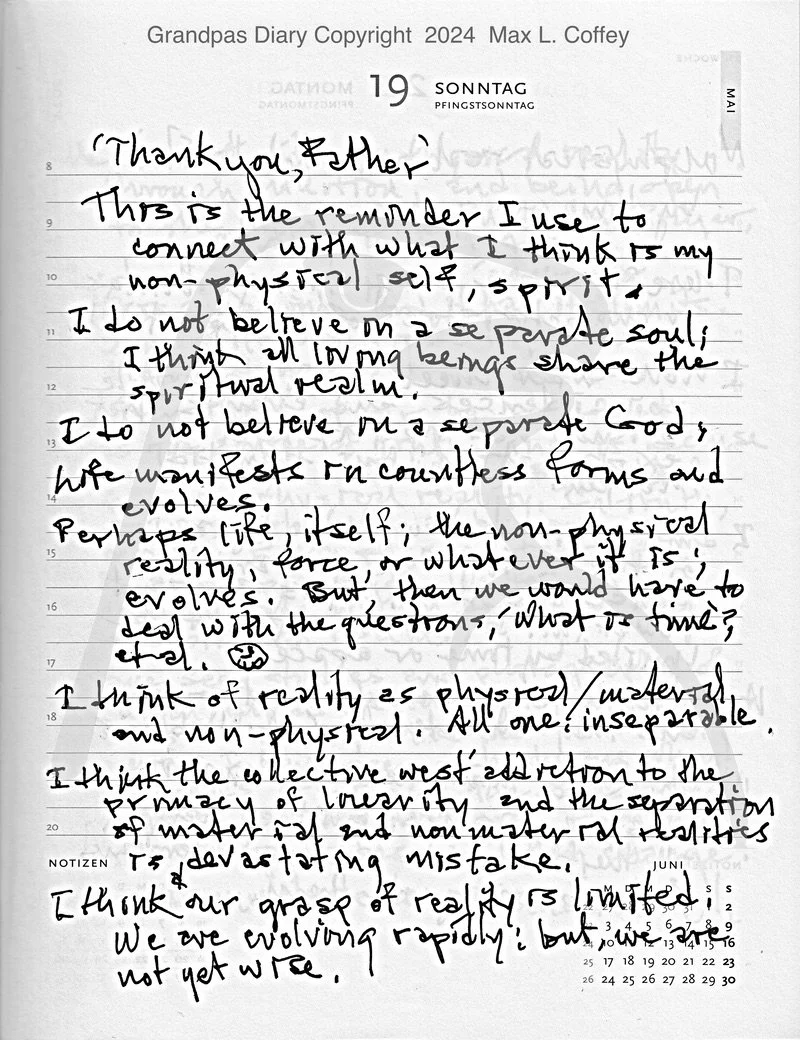 Grandpas Diary Copyright 2024 Max L. Coffey
19 SONNTAG
PFINGSTSONNTAG
MAI
8 'Thank you, Father'
This is the reminder I use to
9 connect with what I think is my
10 non-physical self, spirit.
11 I do not believe in a separate soul;
I think all living beings share the
12 spiritual realm.
I do not believe in a separate God;
13 Life manifests in countless forms and
14 evolves.
Perhaps life, itself; the non-physical
15 reality, force, or whatever it is;
evolves. But, then we would have to
16 deal with the questions, 'What is time'?,
17 et al.
I think of reality as physical/material
18 and non-physical. All one: inseparable.
I think the collective west addiction to the
primacy of linearity and the separation
20 of material and nonmaterial realities
NOTIZEN is a devastating mistake.
I think our grasp of reality is limited;
We are evolving rapidly: but, we are
not yet wise.
JUNI
M D M D F S S
2
3 4 5 6 7 8 9
10 11 12 13 14 15 16
25 17 18 19 20 21 22 23
26 24 25 26 27 28 29 30